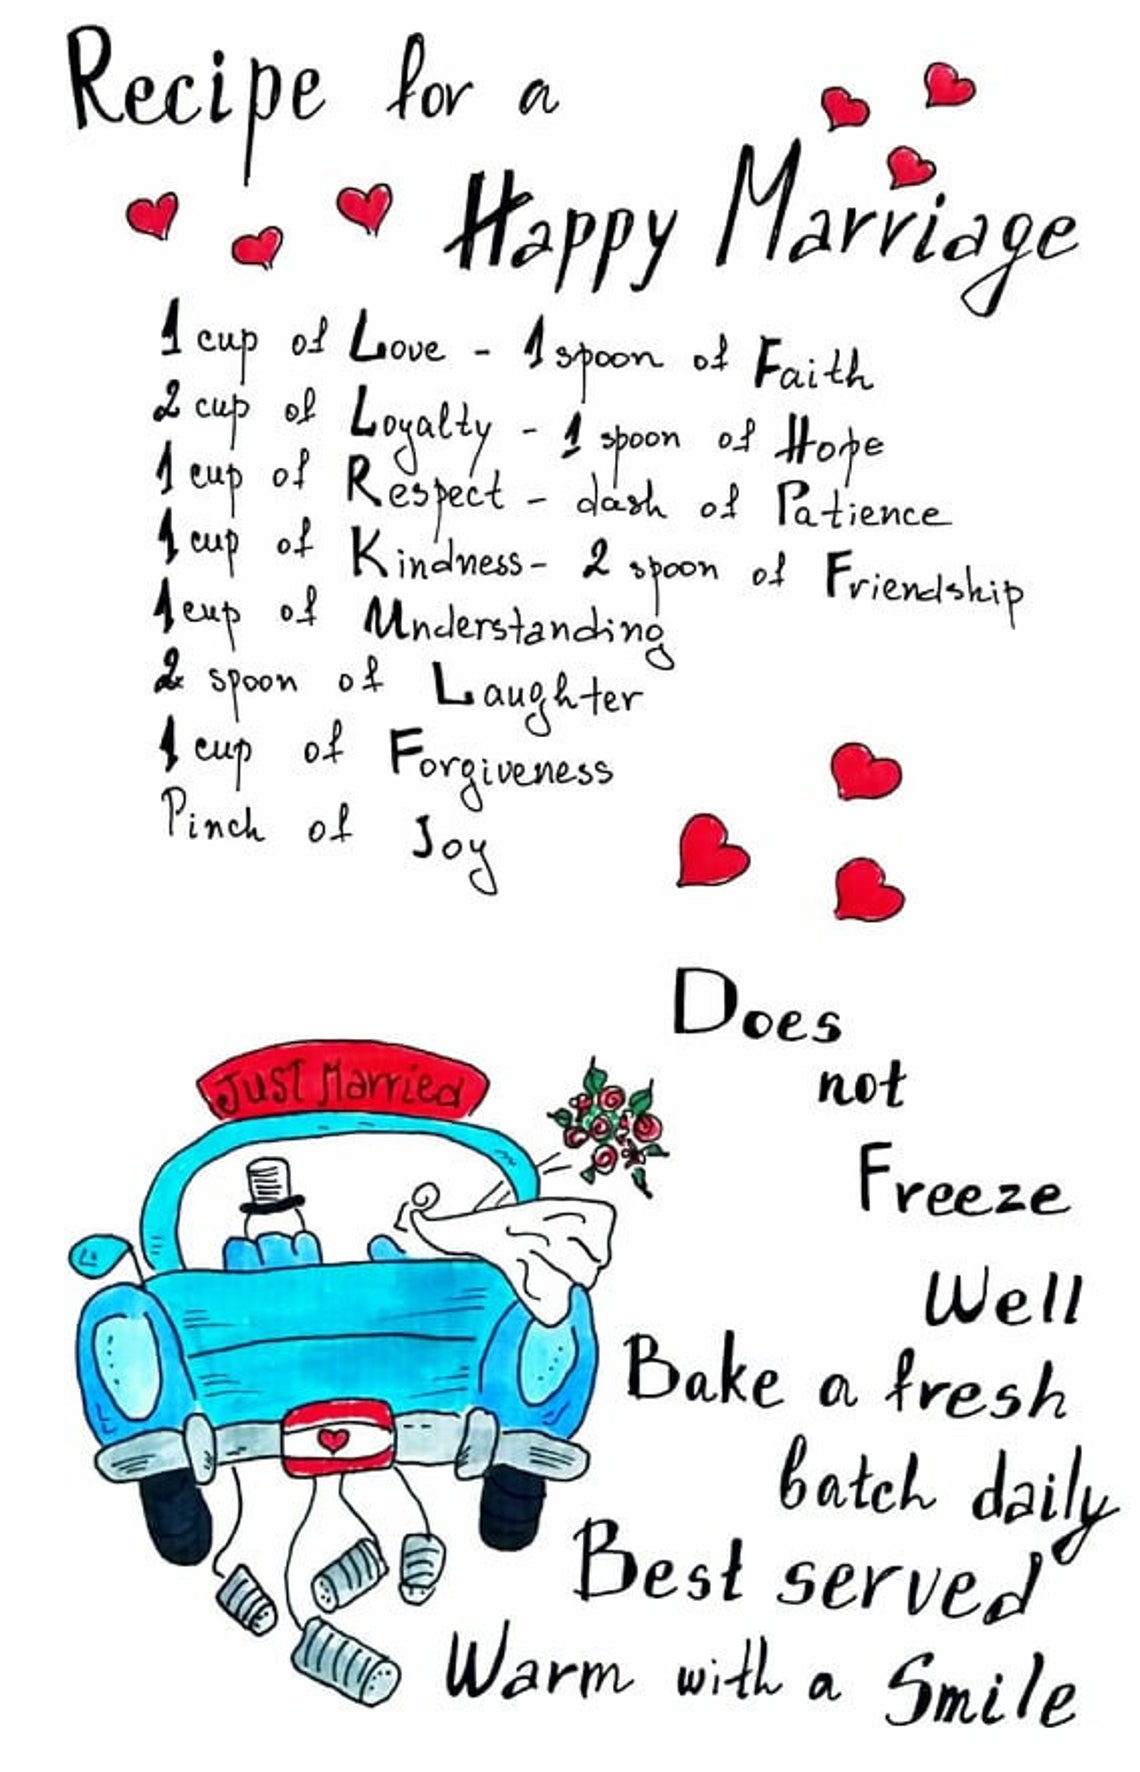 Recipe for a
Happy Marriage
1 cup of Love - 1 spoon of Faith
2 cup of Loyalty - 1 spoon of Hope
1 cup of Respect - dash of Patience
1 cup of Kindness - 2 spoon of Friendship
1 cup of Understanding
2 spoon of Laughter
1 cup of Forgiveness
Pinch of Joy
Does
not
Freeze
Well
Just Married
Bake a fresh
batch daily
Best served
Warm with a Smile